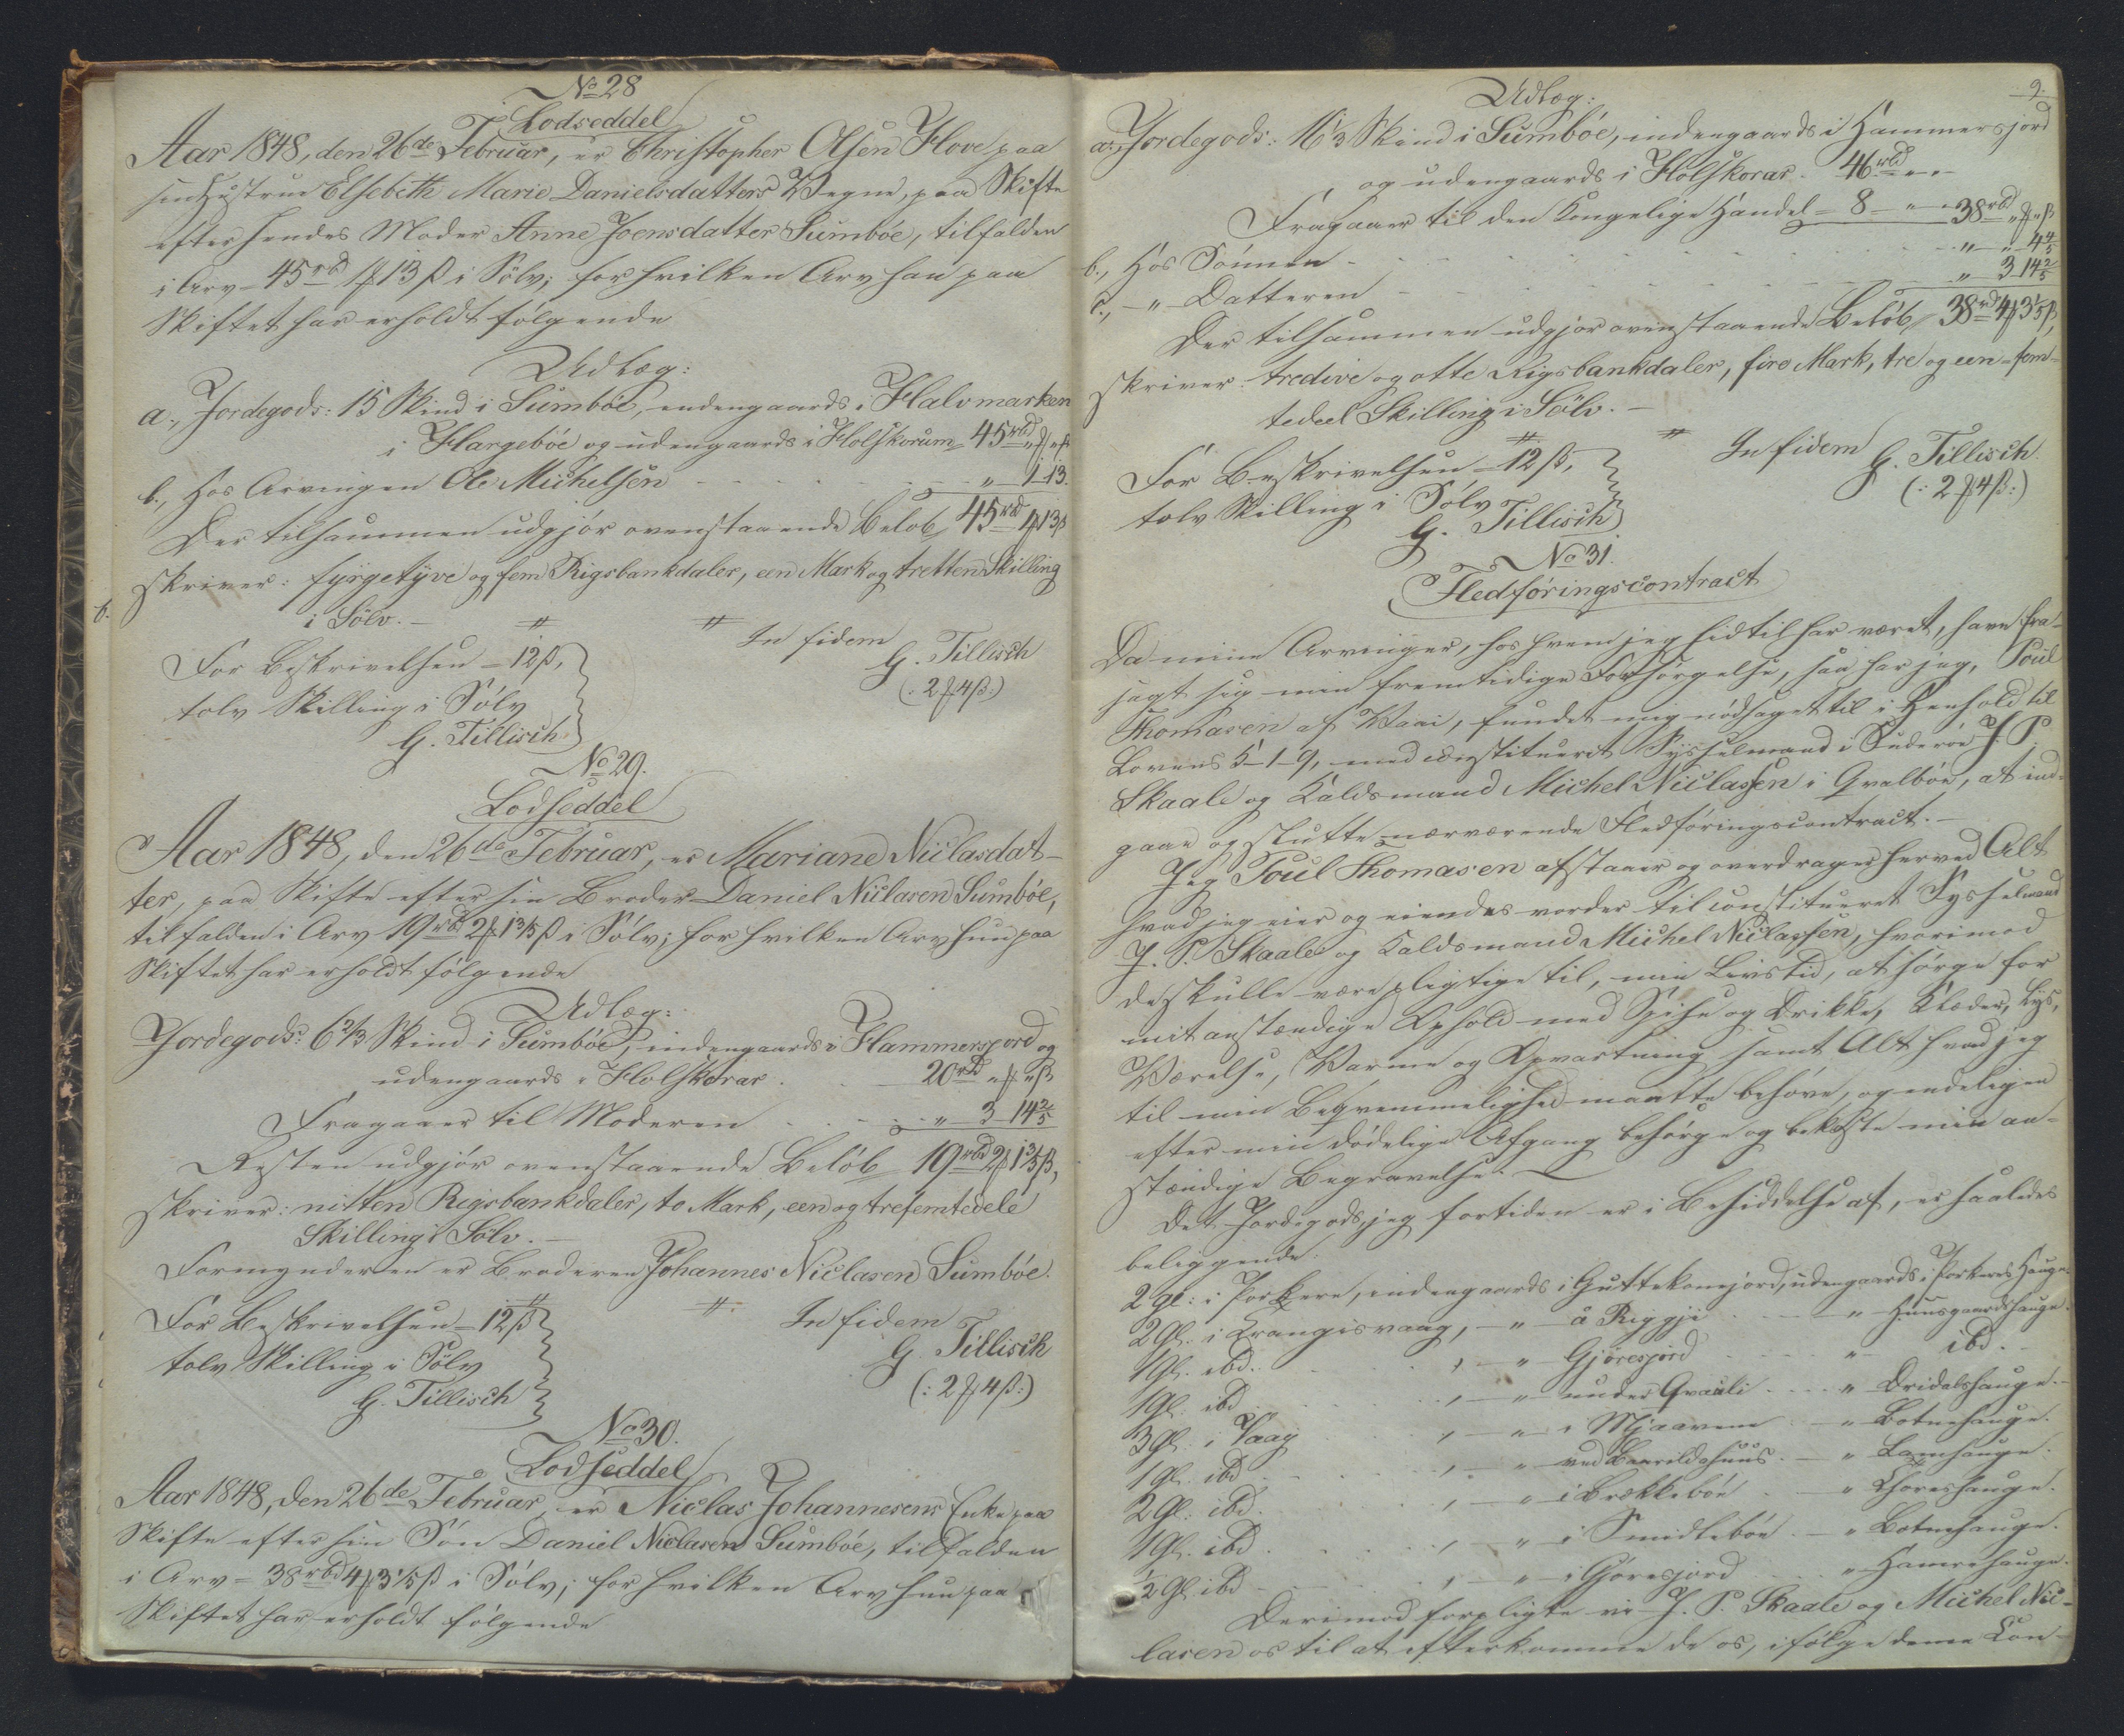 No 28
Lodseddel
Aar 1848, den 26de Februar, er Christopher Olsen Hove paa
sin Hustrue Elsebeth Marie Danielsdatters Vegne, paa Skifte
efter hendes Moder Anne Joensdatter Sumböe, tilfalden
i Arv 45 rbd 1 ƒ 13 ß i Sölv; for hvilken Arv han paa
Skiftet har erholdt fölgende
Udlæg:
a., Jordegods: 15 Skind i Sumböe, indengaards i Halvmarken
i Hargeböe og udengaards i Holskorum 45 rbd " ƒ " ß
b., Hos Arvingen Ole Michelsen " 1 13.
Der tilsammen udgjör ovenstaaende Belöb 45 rbd 1 ƒ 13 ß
skriver: fyrgetyve og fem Rigsbankdaler, een Mark og tretten Skilling
i Sölv.
In fidem
For Beskrivelsen 12 ß,
G. Tillisch
tolv Skilling i Sölv
(: 2 ƒ 4 ß :)
G. Tillisch
No 29.
Lodseddel
Aar 1848, den 26de Februar, er Mariane Niclasdat-
ter, paa Skifte efter sin Broder Daniel Niclasen Sumböe,
tilfalden i Arv 19 rbd 2 ƒ 1 3/5 ß i Sölv; for hvilken Arv hun paa
Skiftet har erholdt fölgende
Udlæg:
Jordegods: 6 2/3 Skind i Sumböe, indengaards i Hammersjord og
udengaards i Holskorar 20 rbd " ƒ " ß
Fragaaer til Moderen " 3 14 2/5
Resten udgjör ovenstaaende Belöb 19 rbd 2 ƒ 1 3/5 ß,
skriver: nitten Rigsbankdaler, to Mark, een og trefemtedele
Skilling i Sölv.
Formynderen er Broderen Johannes Niclasen Sumböe.
For Beskrivelsen 12 ß
In fidem
tolv Skilling i Sölv
G. Tillisch
G. Tillisch
(: 2 ƒ 4 ß :)
No 30.
Lodseddel
Aar 1848, den 26de Februar, er Niclas Johannesens Enke paa
Skifte efter sin Sön Daniel Niclasen Sumböe, tilfalden
i Arv 38 rbd 4 ƒ 3 1/5 ß i Sölv; for hvilken Arv hun paa
Skiftet har erholdt fölgende
9.
Udlæg:
a., Jordegods: 16 1/3 Skind i Sumböe, indengaards i Hammersjord
og udengaards i Holskorar. 46 rbd " "
Fragaaer til den Kongelige Handel 8 " " 38 rbd " ƒ " ß
b., Hos Sönnen " " 4 4/5
c., " Datteren " 3 14 2/5
Der tilsammen udgjör ovenstaaende Belöb 38 rbd 4 ƒ 3 1/5 ß,
skriver: tredive og otte Rigsbankdaler, fire Mark, tre og een fem-
tedeel Skilling i Sölv.
For Beskrivelsen 12 ß,
In fidem
G. Tillisch
tolv Skilling i Sölv
(: 2 ƒ 4 ß :)
G. Tillisch
No 31.
Fledföringscontract
Da mine Arvinger, hos hvem jeg hidtil har været, have fra-
sagt sig min fremtidige Forsörgelse, saa har jeg, Poul
Thomasen af Waai, fundet mig nödsaget til i Henhold til
Lovens 5-1-9, med constitueret Sysselmand i Suderöe J. P.
Skaale og Kaldsmand Michel Niclassen i Qvalböe, at ind-
gaae og slutte nærværende Fledföringscontract.
Jeg Poul Thomasen afstaaer og overdrager herved Alt
hvad jeg eier og eiendes vorder til constitueret Sysselmand
J. P. Skaale og Kaldsmand Michel Niclassen, hvorimod
de skulle være pligtige til, min Livstid, at sörge for
mit anstændige Ophold med Spise og Drikke, Klæder, Lys,
Værelse, Varme og Opvartning samt Alt hvad jeg
til min Beqvemmelighed maatte behöve, og endeligen
efter min dödelige Afgang besörge og bekoste min an-
stændige Begravelse.
Det Jordegods, jeg fortiden er i Besiddelse af, er saaledes
beliggende:
2 Gl: i Porkere, indengaards i Guttekonejord, udengaards i Porkeres Hauge.
2 Gl. i Trangisvaag, " å Riggji " Huusgaardshauge.
1 Gl. ibd. " Gjöresjord " ibd.
1 Gl. ibd " under Qvauli " Oridalshauge.
3 Gl. i Vaag " i Mjaavene " Botnehauge.
1 Gl. ibd " ved Baarildshuus. " Lamhauge.
2 Gl. ibd. " i Brekkeböe " Thoreshauge.
1 Gl. ibd " i Smidleböe " Botnehauge.
1/2 Gl. ibd " i Gjöresjord " Hamrehauge.
Derimod forpligte vi J. P. Skaale og Michel Nic-
lasen os til at efterkomme de os, ifölge denne Con-